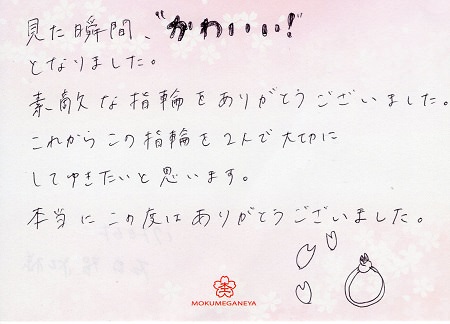 見た瞬間、"かわいいい!"
となりました。
素敵な指輪をありがとうございました。
これからこの指輪を2人で大切に
してゆきたいと思います。
本当にこの度はありがとうございました。
MOKUMEGANEYA